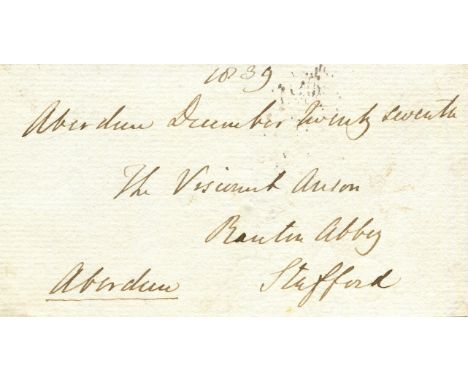 1839
Aberdeen December twenty seventh
The Viscount Anson
Ranton Abbey
Aberdeen Stafford